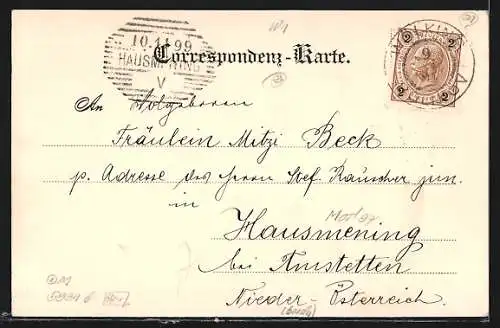 10.11.99
HAUSMENING
V
Correspondenz-Karte.
2 2
2 2
9
An Holgeboren
Fräulein Mitzi Beck
p. Adresse des Herrn Stef Rauscher jun.
in
Hausmening
bei Amstetten
Nieder-Österreich.